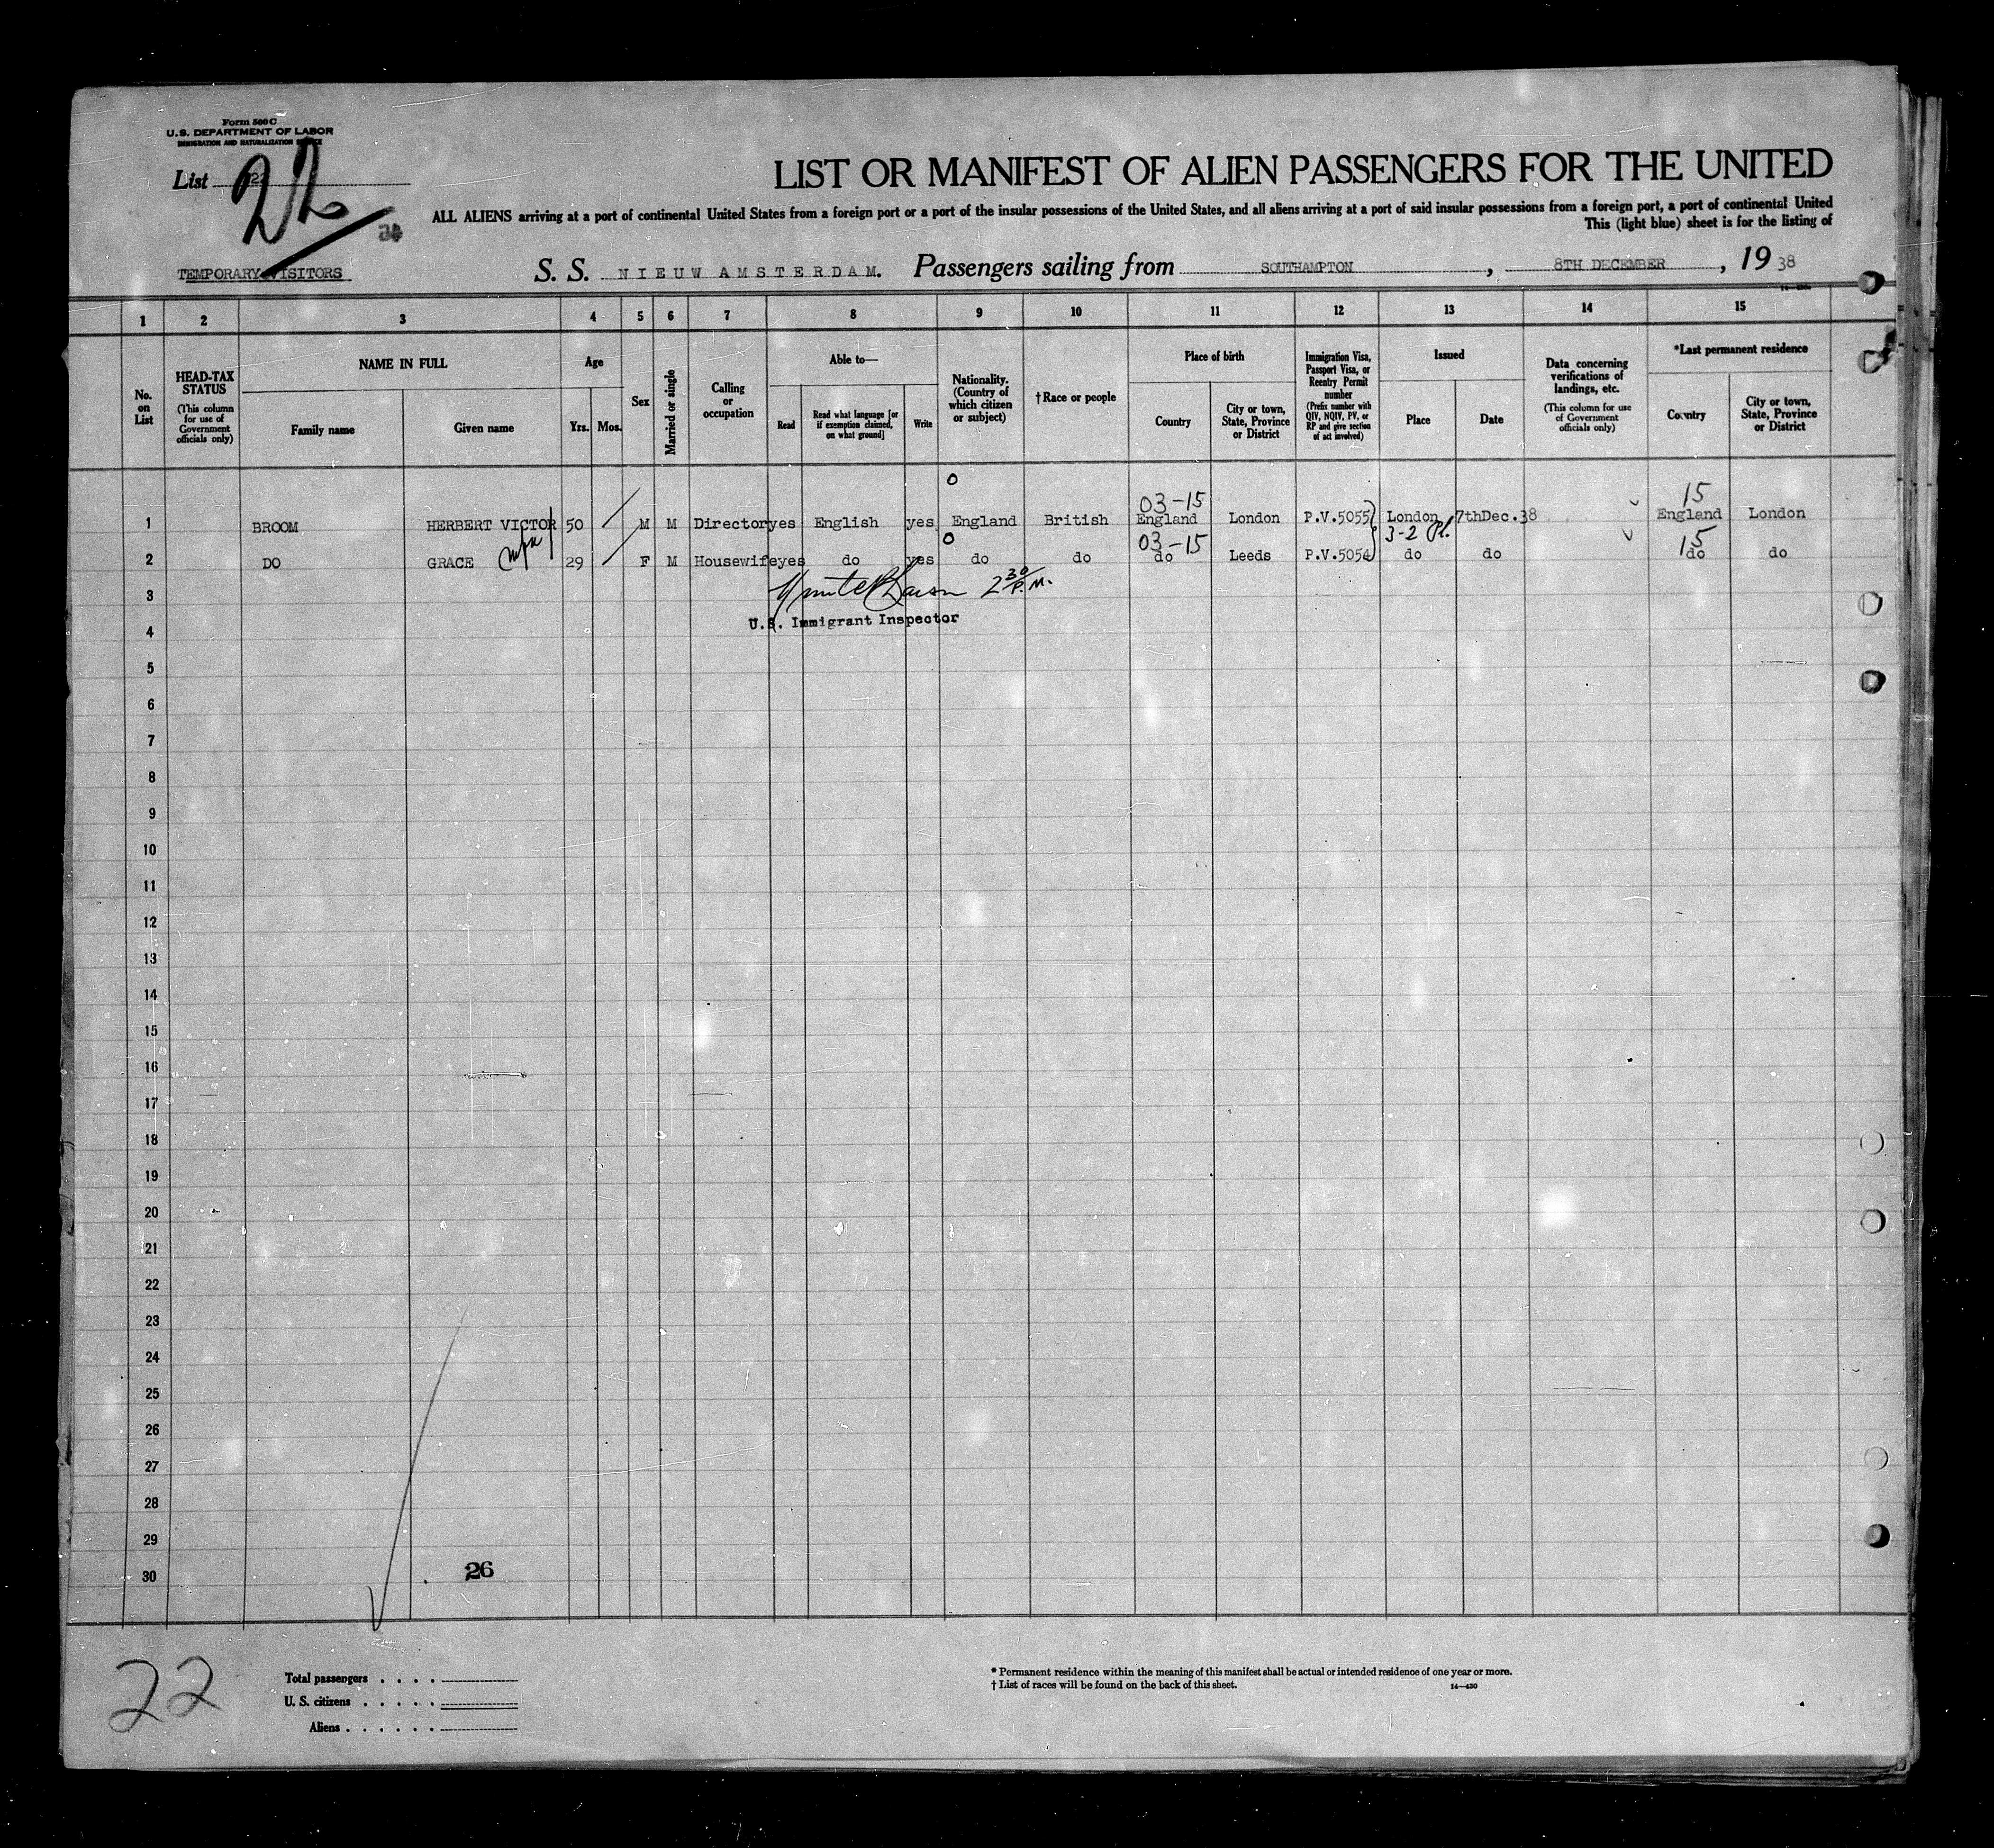 Form 500 C
U.S. DEPARTMENT OF LABOR
IMMIGRATION AND NATURALIZATION SERVICE
List 22
22
TEMPORARY VISITORS
LIST OR MANIFEST OF ALIEN PASSENGERS FOR THE UNITED
ALL ALIENS arriving at a port of continental United States from a foreign port or a port of the insular possessions of the United States, and all aliens arriving at a port of said insular possessions from a foreign port, a port of continental United
This (light blue) sheet is for the listing of
S. S. NIEUW AMSTERDAM. Passengers sailing from SOUTHAMPTON, 8TH DECEMBER, 19 38
1 2 3 4 5 6 7 8 9 10 11 12 13 14 15
No. on List
HEAD-TAX STATUS (This column for use of Government officials only)
NAME IN FULL
Family name
Given name
Age
Yrs. Mos.
Sex
Married or single
Calling or occupation
Able to—
Read
Read what language [or if exemption claimed, on what ground]
Write
Nationality. (Country of which citizen or subject)
† Race or people
Place of birth
Country
City or town, State, Province or District
Immigration Visa, Passport Visa, or Reentry Permit number (Prefix number with QIV, NQIV, PV, or RP and give section of act involved)
Issued
Place
Date
Data concerning verifications of landings, etc. (This column for use of Government officials only)
*Last permanent residence
Country
City or town, State, Province or District
0 03-15 15
1 BROOM HERBERT VICTOR 50 M M Director yes English yes England British England London P.V.5055 London 7thDec.38 England London
0 03-15 3-2 15
2 DO GRACE 29 F M Housewife yes do yes do do do Leeds P.V.5054 do do do do
3 2 30 P.M.
U.S. Immigrant Inspector
4
5
6
7
8
9
10
11
12
13
14
15
16
17
18
19
20
21
22
23
24
25
26
27
28
29
30 26
22
Total passengers
U. S. citizens
Aliens
* Permanent residence within the meaning of this manifest shall be actual or intended residence of one year or more.
† List of races will be found on the back of this sheet. 14—430